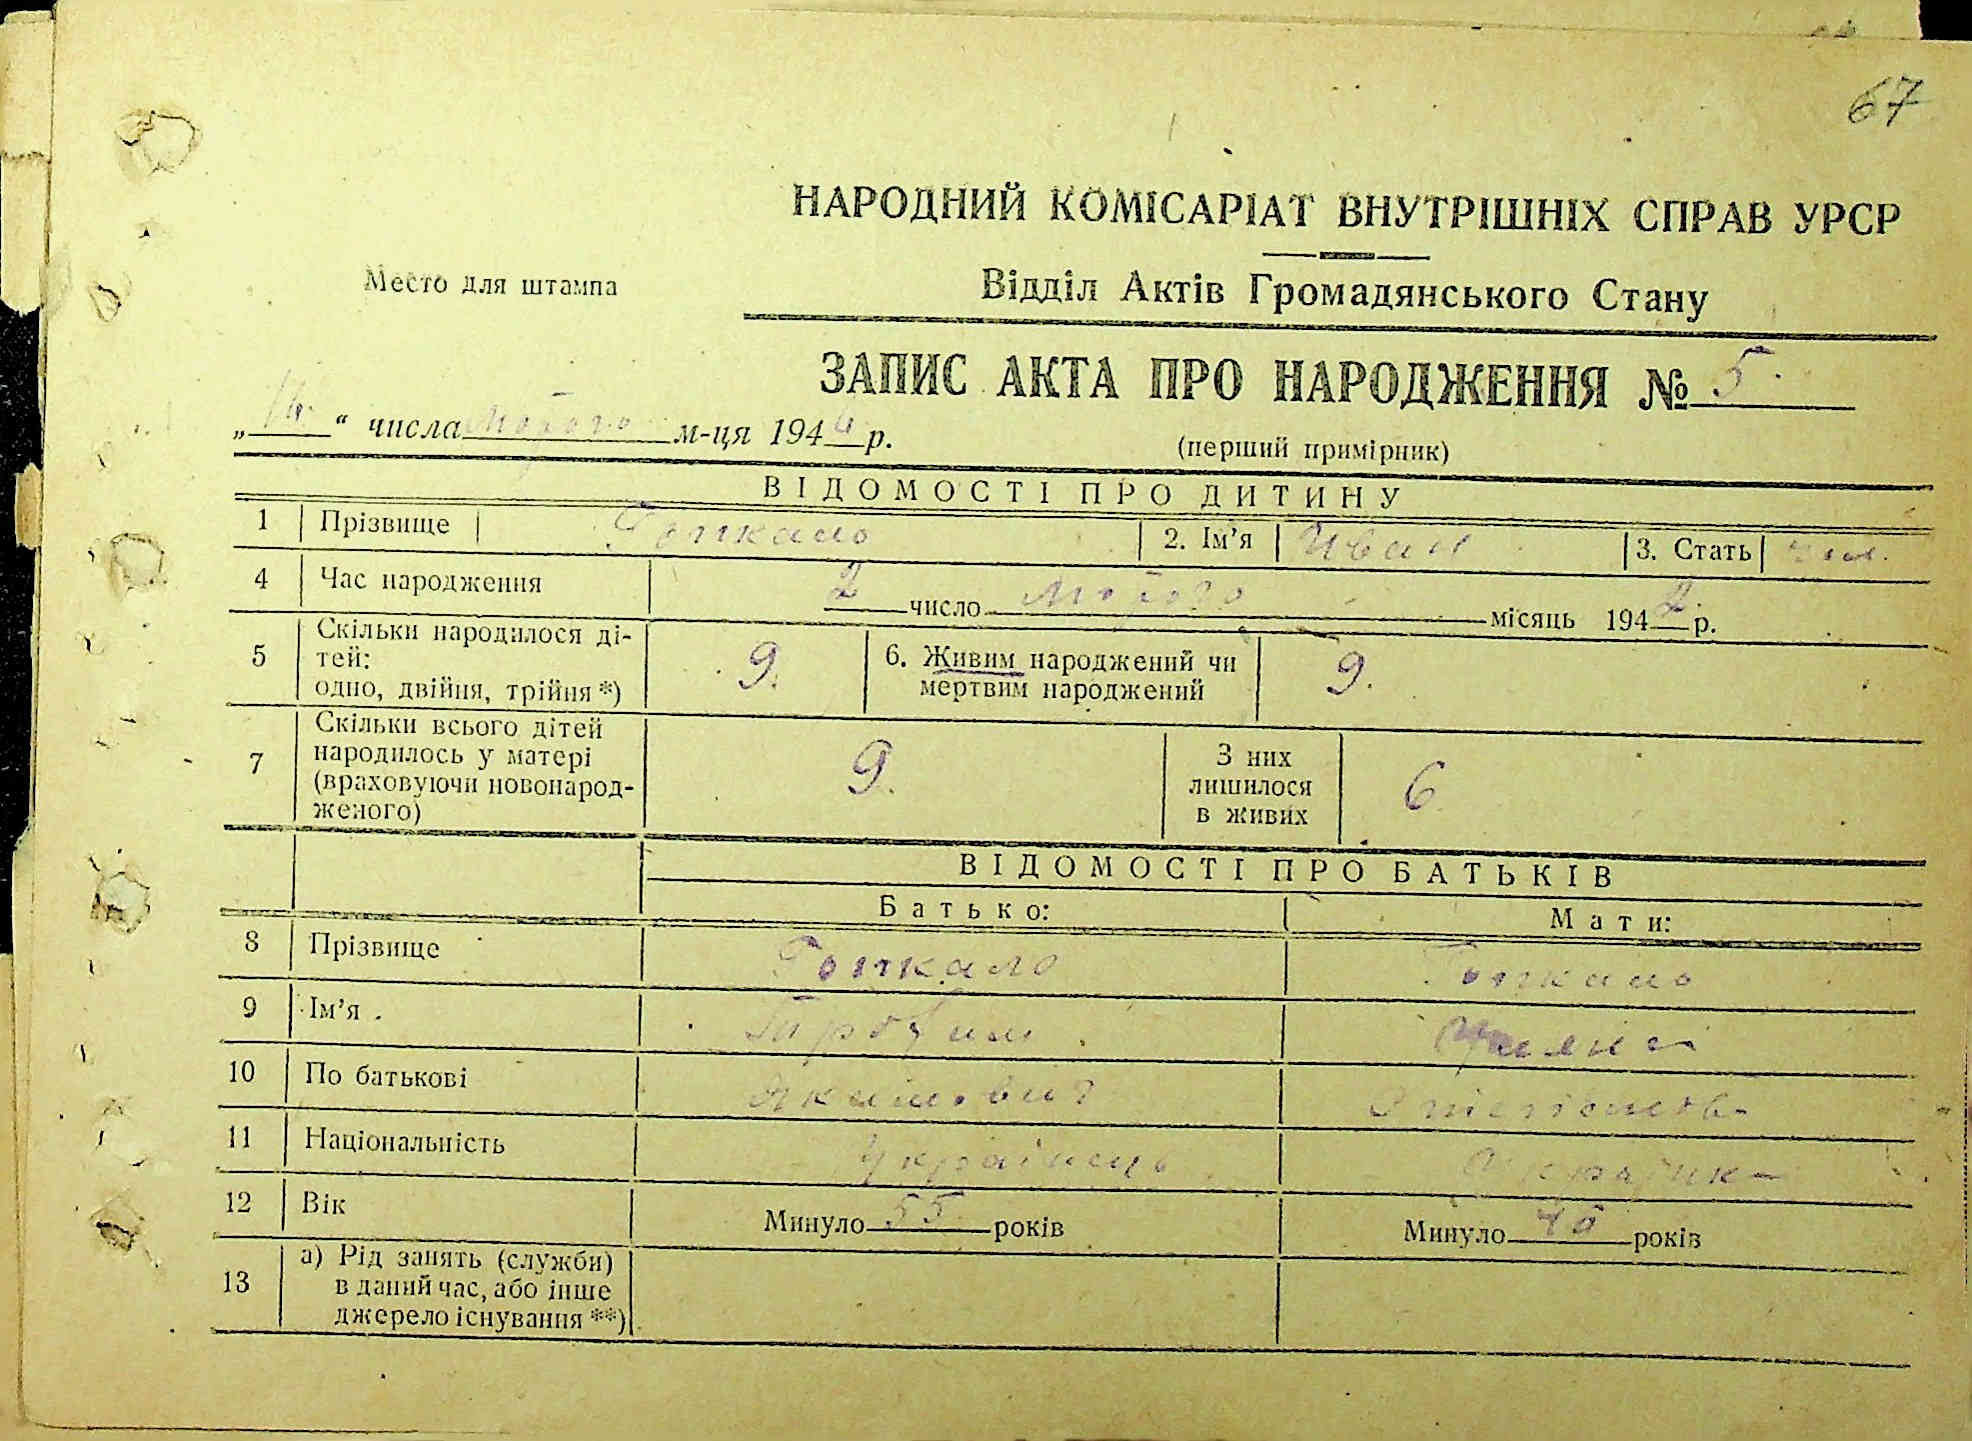 67
НАРОДНИЙ КОМІСАРІАТ ВНУТРІШНІХ СПРАВ УРСР
Место для штампа
Відділ Актів Громадянського Стану
ЗАПИС АКТА ПРО НАРОДЖЕННЯ № 5.
„ “ числа лютого м-ця 194 р.
(перший примірник)
ВІДОМОСТІ ПРО ДИТИНУ
1 Прізвище Гопкало 2. Ім’я Иван 3. Стать чол.
4 Час народження 2 число лютого місяць 1942 р.
5 Скільки народилося ді-
тей:
одно, двійня, трійня *) 9. 6. Живим народжений чи
мертвим народжений 9.
7 Скільки всього дітей
народилось у матері
(враховуючи новонарод-
женого) 9. З них
лишилося
в живих 6
ВІДОМОСТІ ПРО БАТЬКІВ
Батько: Мати:
8 Прізвище Гопкало Гопкало
9 Ім’я Трофим
10 По батькові Якимович
11 Національність Українець Українка
12 Вік Минуло 55 років Минуло років
13 а) Рід занять (служби)
в даний час, або інше
джерело існування **)